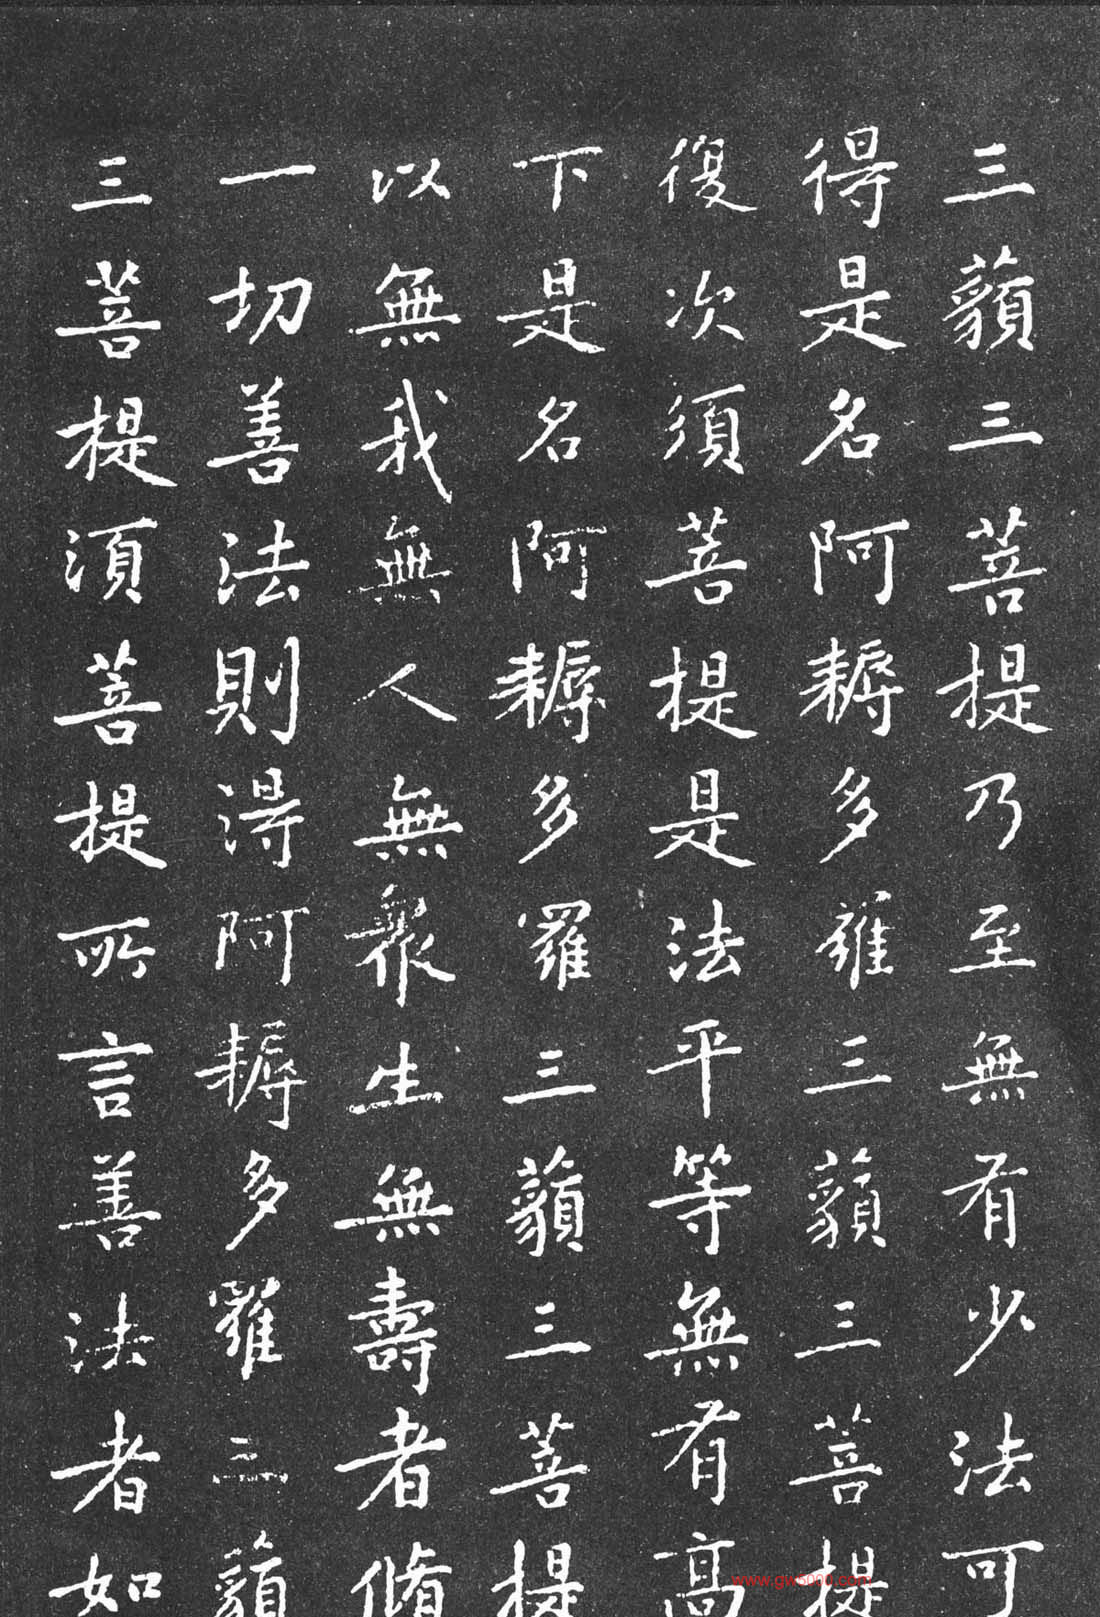 三藐三菩提乃至無有少法可
得是名阿耨多羅三藐三菩提
復次須菩提是法平等無有高
下是名阿耨多羅三藐三菩提
以無我無人無眾生無壽者脩
一切善法則得阿耨多羅三藐
三菩提須菩提所言善法者如
www.gw5000.com